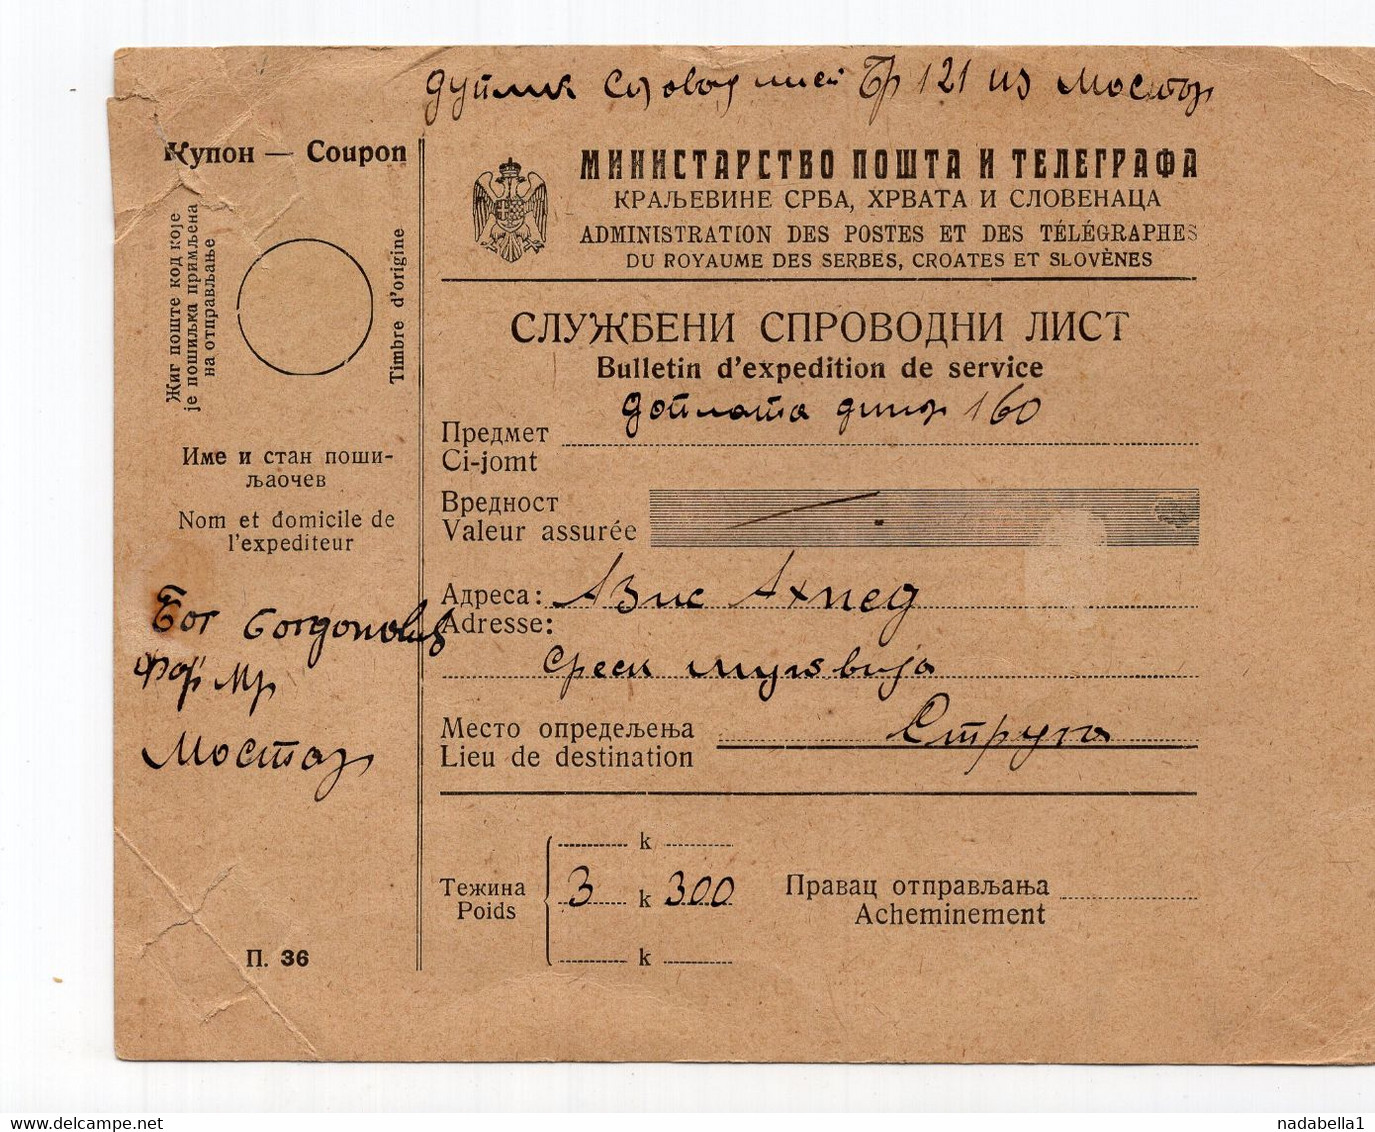 дуплик спроводни Бр 121 из Мостар
Купон — Coupon
Жиг поште код које
је пошиљка примљена
на отправљање
Timbre d'origine
Име и стан поши-
љаочев
Nom et domicile de
l'expediteur
Мостар
П. 36
МИНИСТАРСТВО ПОШТА И ТЕЛЕГРАФА
КРАЉЕВИНЕ СРБА, ХРВАТА И СЛОВЕНАЦА
ADMINISTRATION DES POSTES ET DES TÉLÉGRAPHES
DU ROYAUME DES SERBES, CROATES ET SLOVÈNES
СЛУЖБЕНИ СПРОВОДНИ ЛИСТ
Bulletin d'expedition de service
доплата динар 160
Предмет
Ci-jomt
Вредност
Valeur assurée
Адреса: Азис Ахмед
Adresse:
Среск
Место опредељења Струга
Lieu de destination
k
Тежина 3 k 300
Poids
k
Правац отправљања
Acheminement
delcampe.net
nadabella1